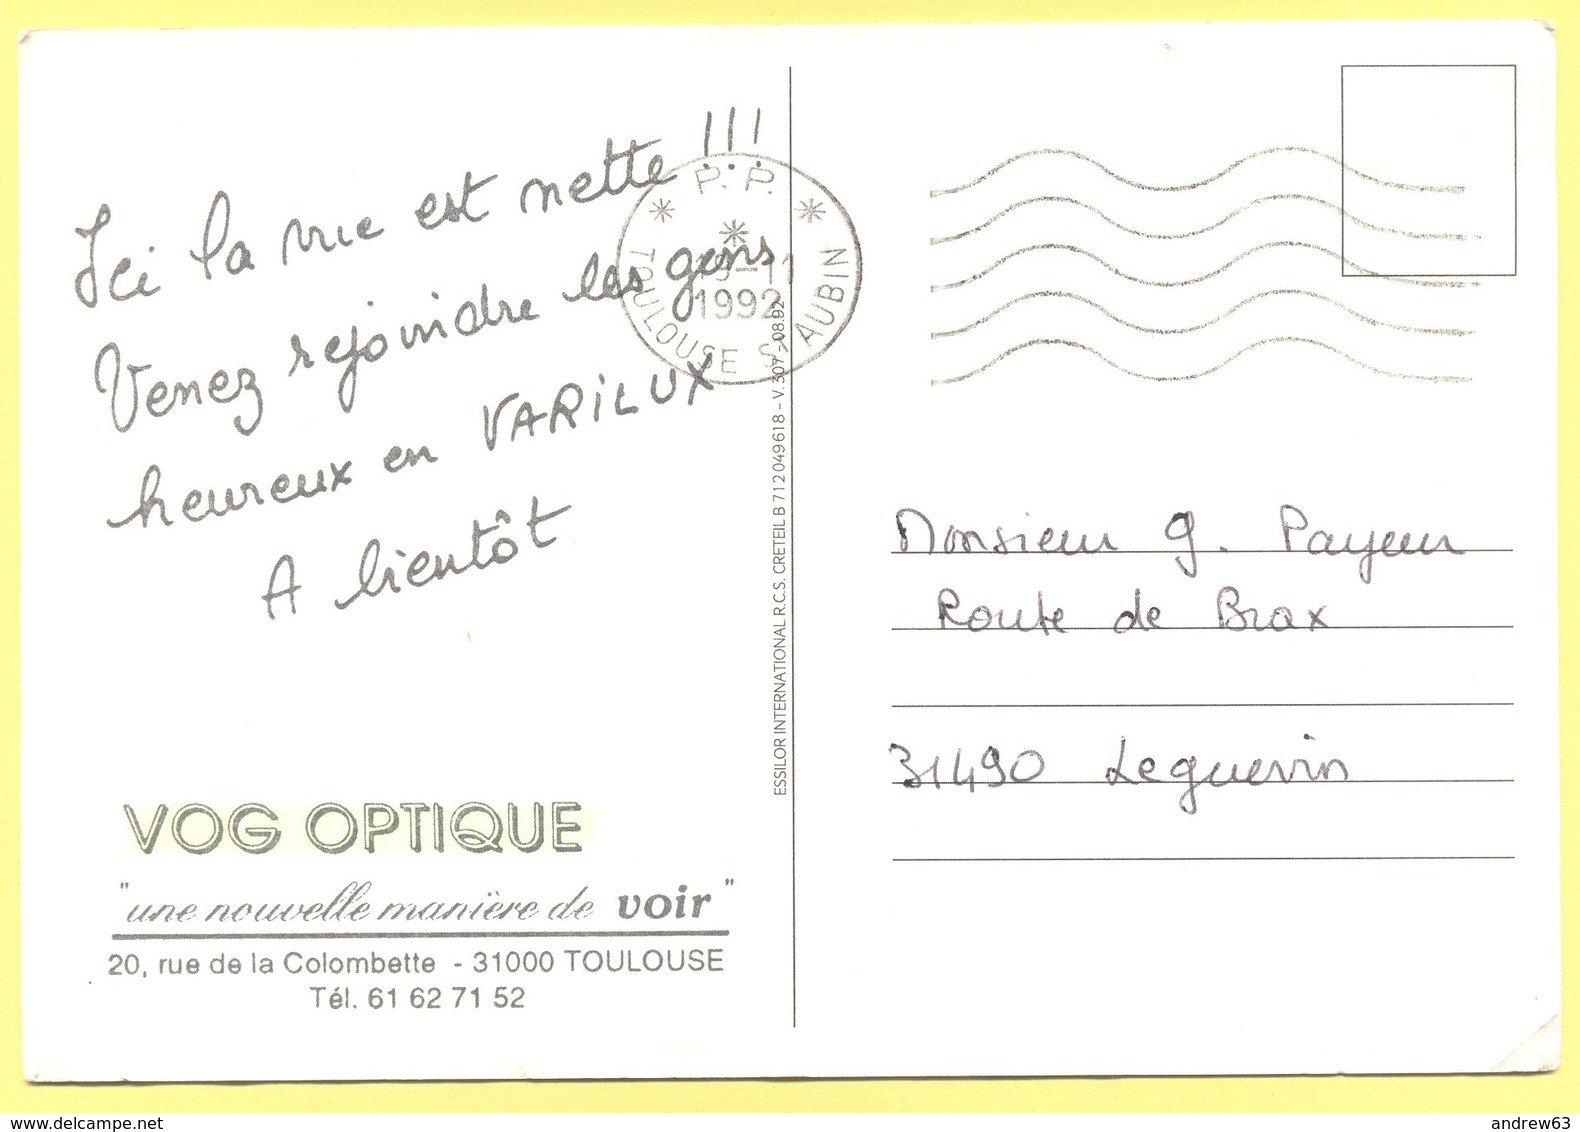 Ici la vue est nette !!!
Venez rejoindre les gens
heureux en VARILUX
A bientôt
VOG OPTIQUE
"une nouvelle manière de voir"
20, rue de la Colombette - 31000 TOULOUSE
Tél. 61 62 71 52
P.P.
-11
1992
TOULOUSE ST AUBIN
ESSILOR INTERNATIONAL R.C.S. CRETEIL B 712049618 - V.307 - 08.92
Monsieur G. Payeur
Route de Brax
31490 Leguevin
andrew63